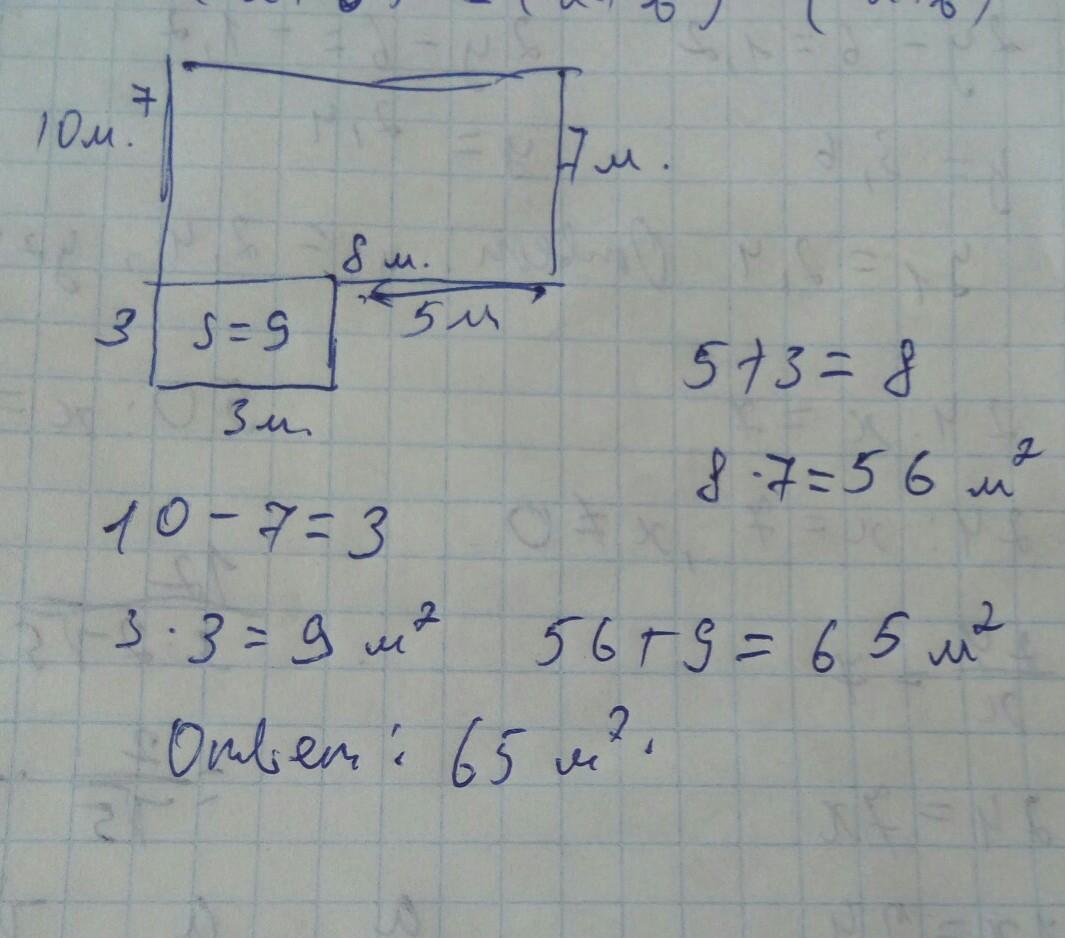 7
10м.
7м.
8 м.
3
S=9
5м
3м.
5+3= 8
8·7=56 м²
10-7=3
3·3=9 м²
56+9=65 м²
Ответ: 65 м².